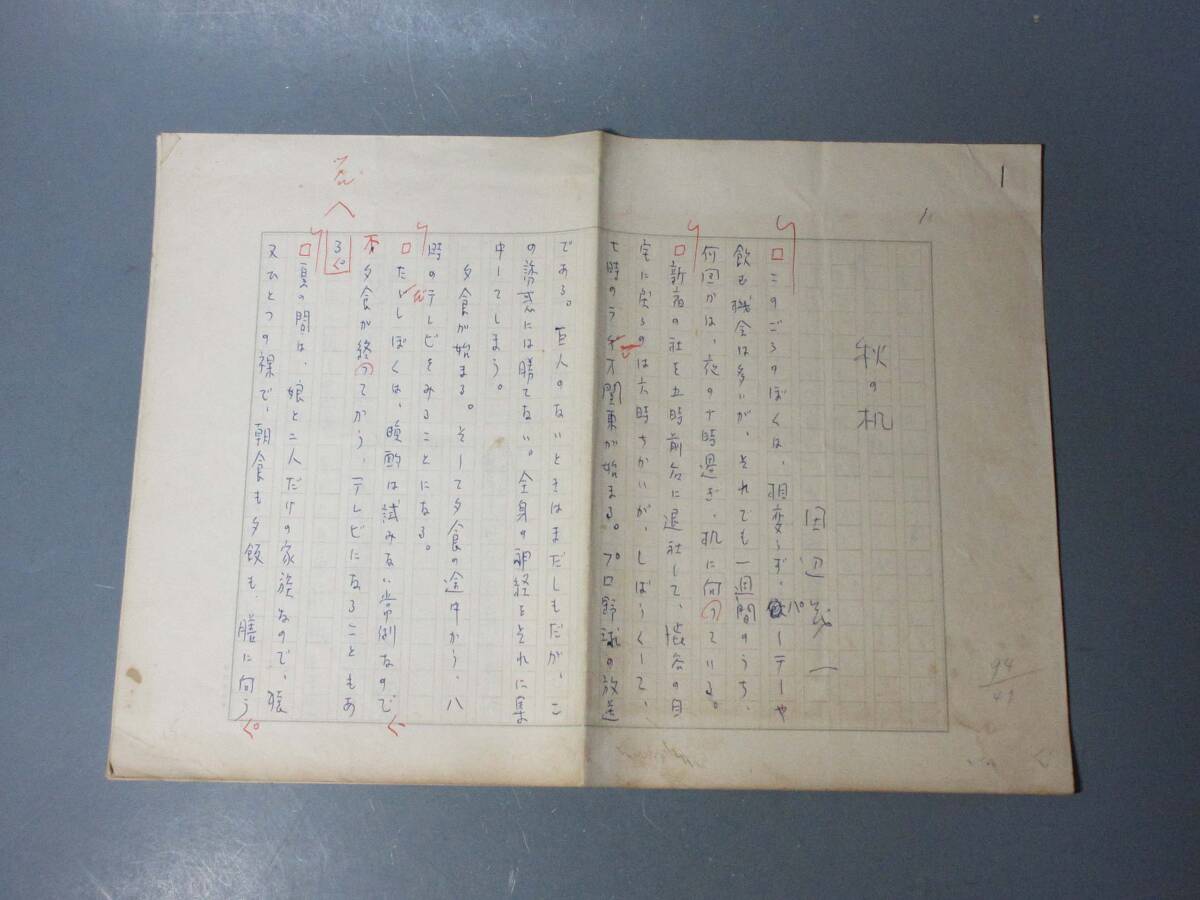 1
秋の机
田辺茂一
このごろのぼくは、相変らず、パーテーや
飲む機会は多いが、それでも一週間のうち、
何回かは、夜の十時過ぎ、机に向っている。
新宿の社を五時前后に退社して、渋谷の自
宅に戻るのは六時ちかいが、しばらくして、
七時のラヂオ関東が始まる。プロ野球の放送
である。巨人のないときはまだしもだが、こ
の誘惑には勝てない。全身の神経をそれに集
中してしまう。
夕食が始まる。そして夕食の途中から、八
時のテレビをみることになる。
たいしぼくは、晩酌は試みない常例なので
夕食が終ってから、テレビになることもあ
る。
夏の間は、娘と二人だけの家族なので、猿
又ひとつの裸で、朝食も夕飯も、膳に向う
94
41